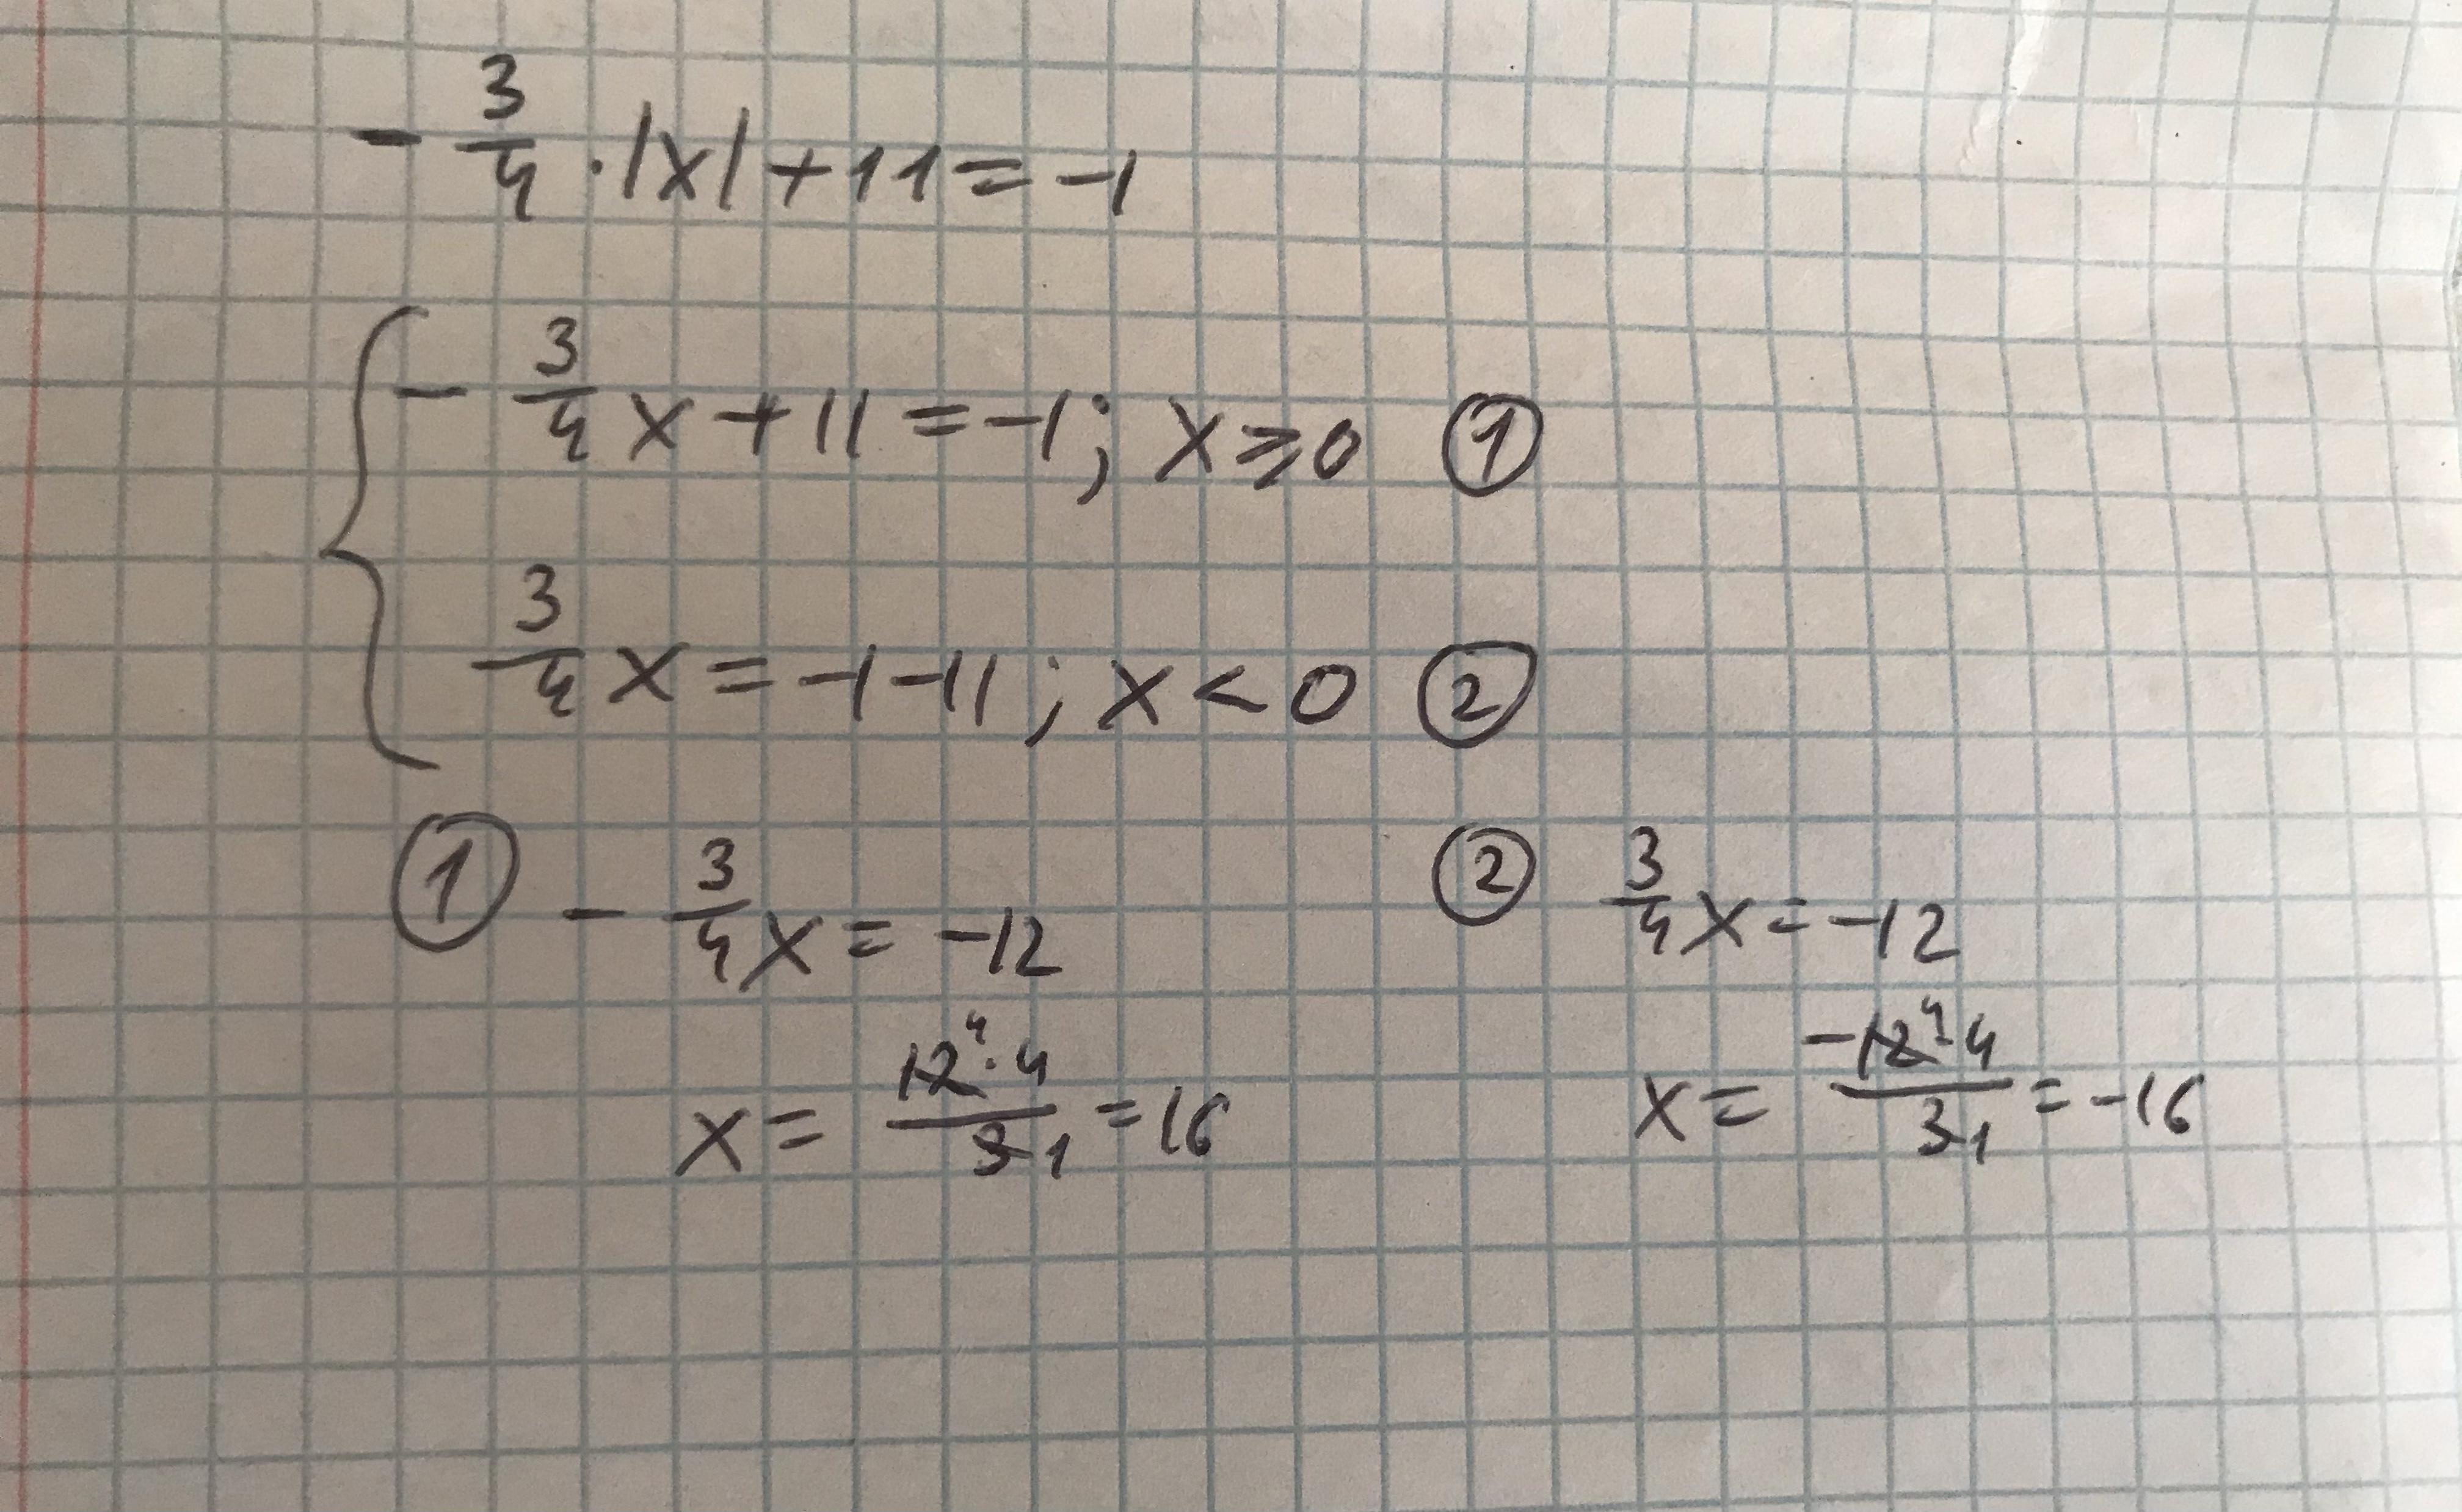 - 3/4 · |x| + 11 = -1
- 3/4 x + 11 = -1; x ⩾ 0 ①
3/4 x = -1 - 11; x < 0 ②
① - 3/4 x = -12
x = 12⁴ · 4 / 3₁ = 16
② 3/4 x = -12
x = -12⁴ · 4 / 3₁ = -16